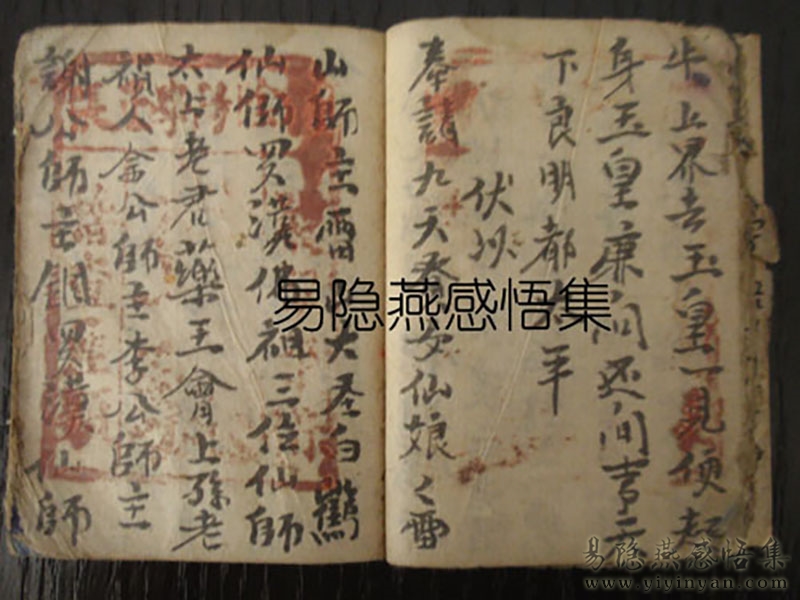 牛上界去玉皇一見便起
身玉皇廉向还间吉三
下良明都
年
伏以
奉請九天
女仙娘々雷
山師主雷
大圣白鶴
仙師羅漢佛祖三位仙師
太上老君藥王會上孫老
禎人金公師主李公師主
謝公師主銅羅漢仙師
易隐燕感悟集
易隐燕感悟集
www.yiyinyan.com